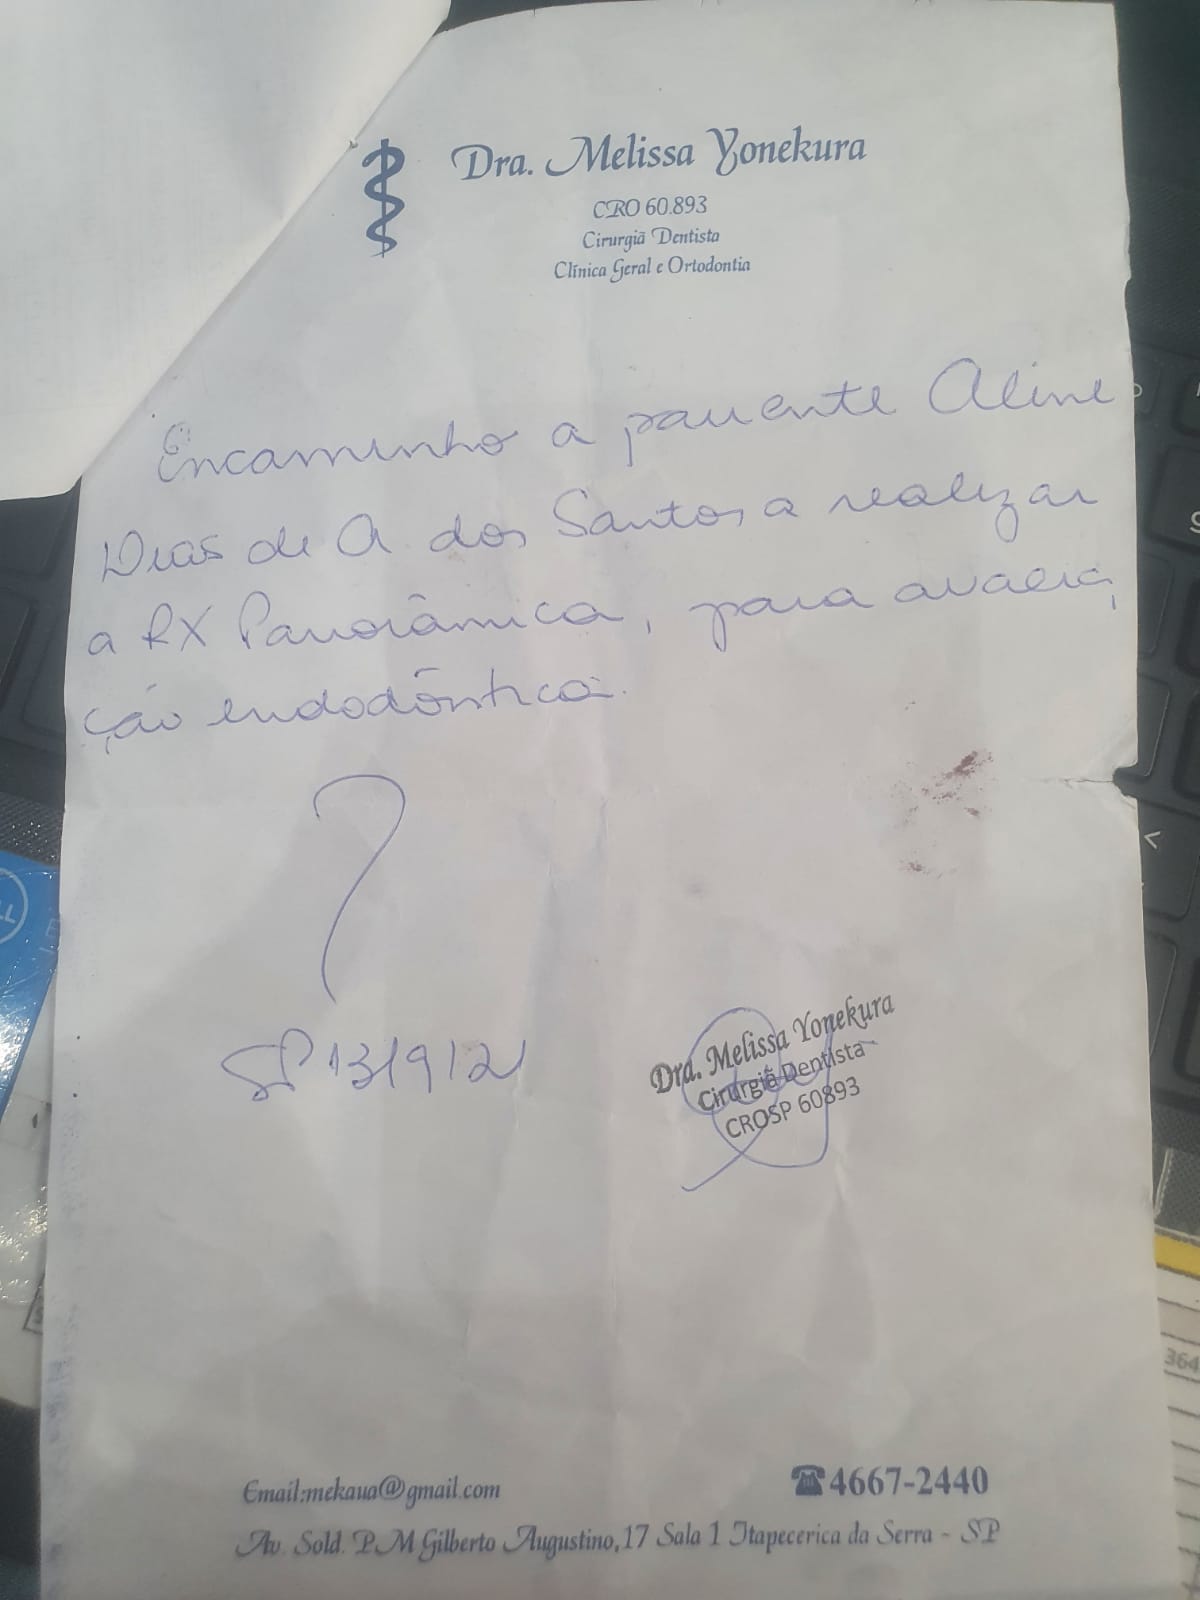 Dra. Melissa Yonekura
CRO 60.893
Cirurgiã Dentista
Clínica Geral e Ortodontia
Encaminho a paciente Aline
Dias de A. dos Santos a realizar
a RX Panorâmica, para avalia
ção endodôntica.
SP 13/9/21
Dra. Melissa Yonekura
Cirurgiã Dentista
CROSP 60893
Email:mekaua@gmail.com
☎4667-2440
Av. Sold. P.M Gilberto Augustino,17 Sala 1 Itapecerica da Serra - SP
364